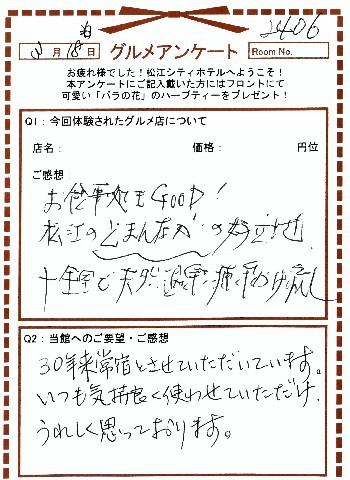 月18日 グルメアンケート Room No. 2406
お疲れ様でした!松江シティホテルへようこそ!
本アンケートにご記載いただいた方にはフロントにて
可愛い「バラの花」のハーブティーをプレゼント!
Q1:今回体験されたグルメ店について
店名: 価格: 円位
ご感想
お食事処もGOOD!
松江のどまんなかの好立地
Q2:当館へのご要望・ご感想
30年来常宿とさせていただいています。
いつも気持良く使わせていただけ、
うれしく思っております。